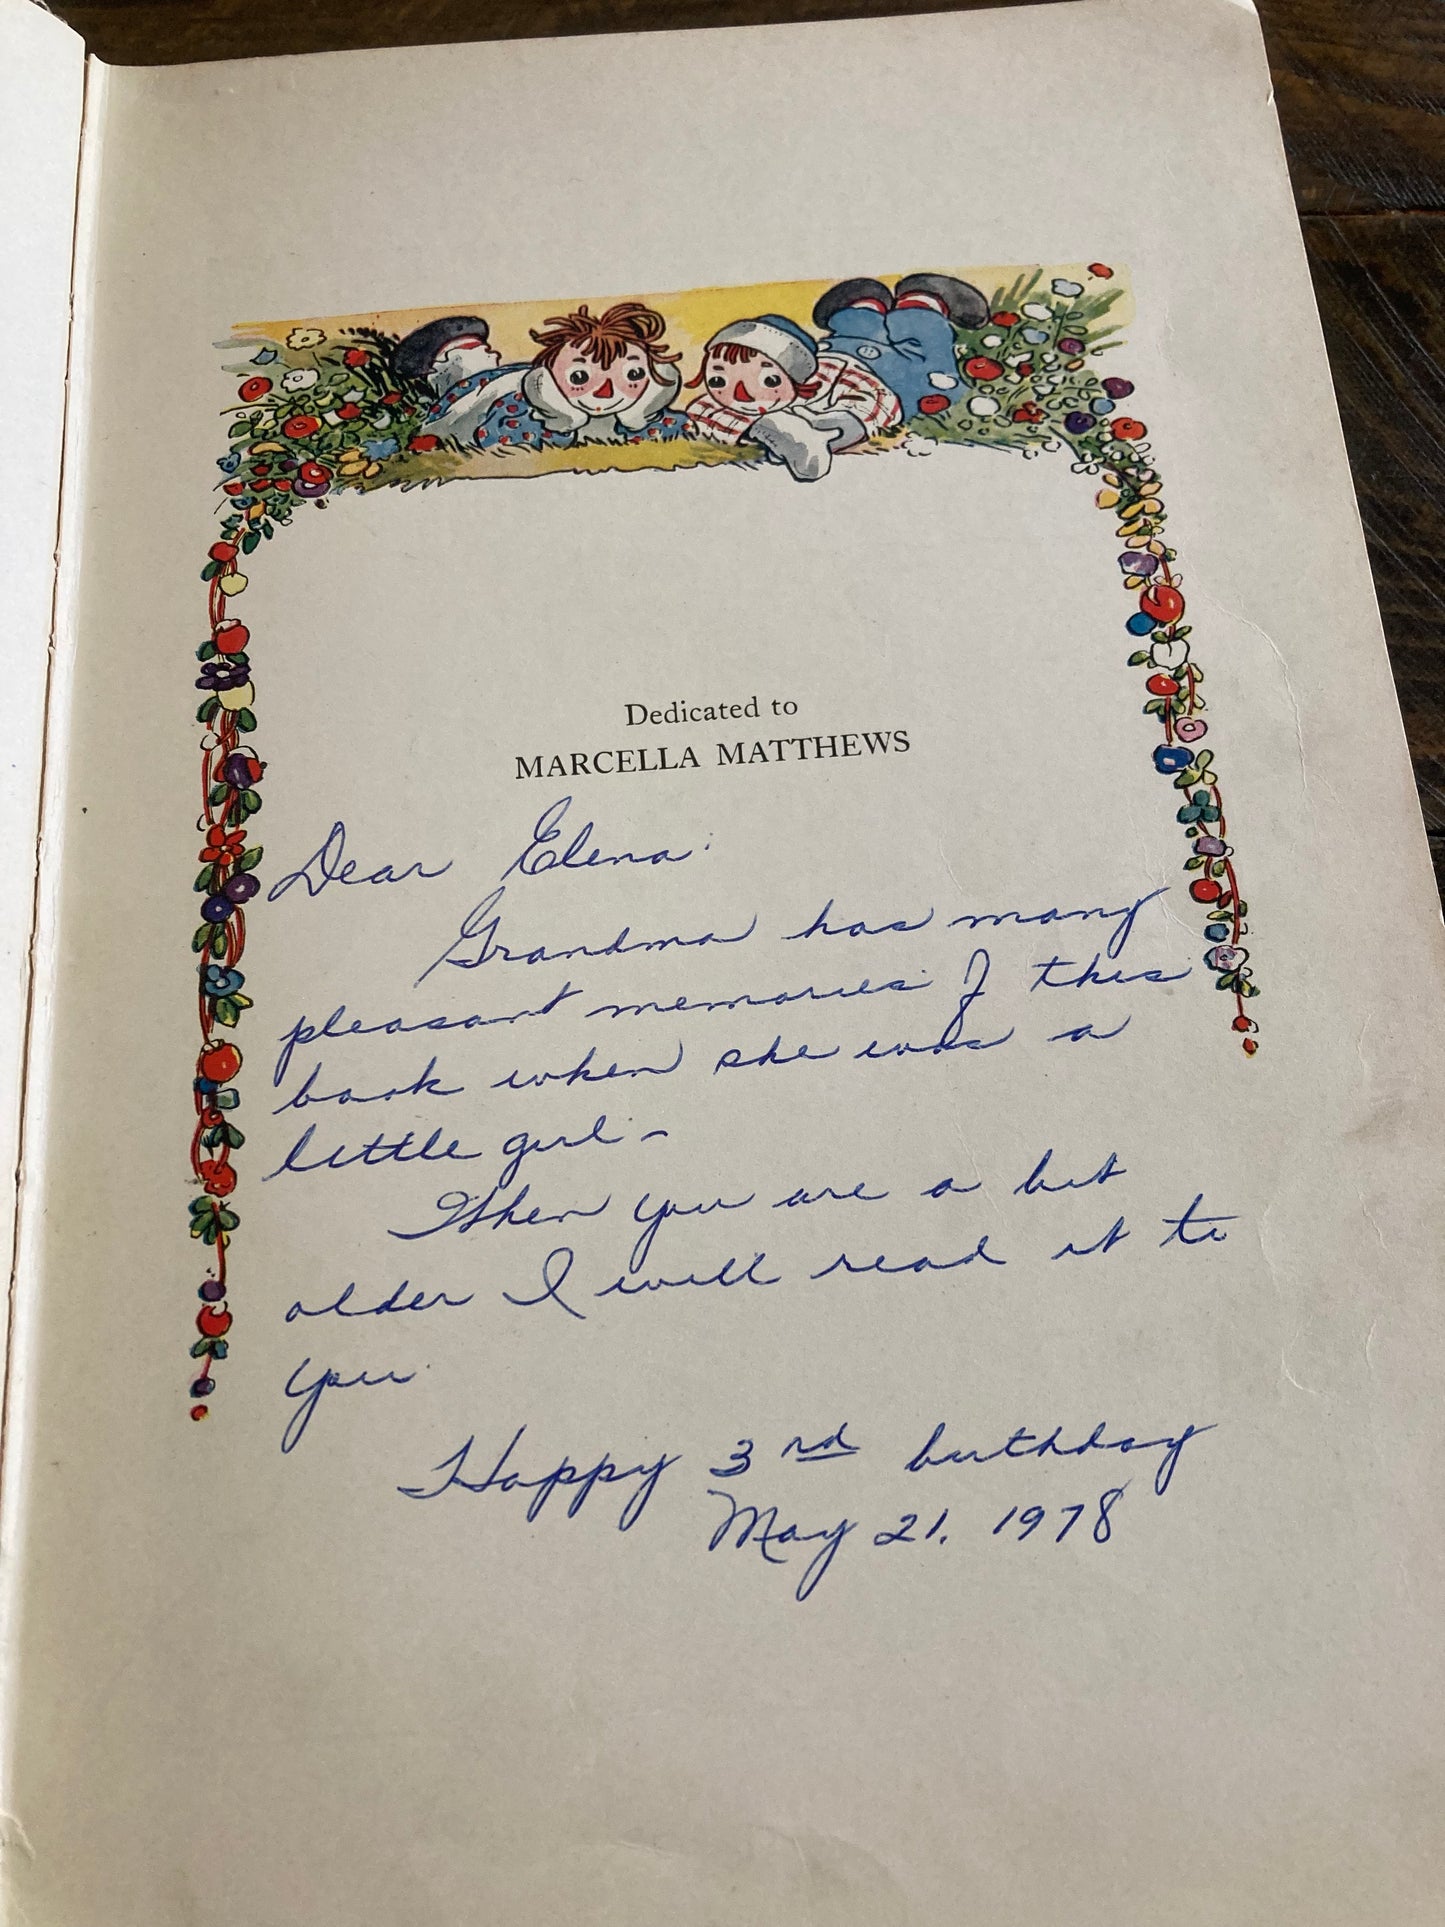 Dedicated to
MARCELLA MATTHEWS
Dear Elena:
Grandma has many
pleasant memories of this
book when she was a
little girl -
When you are a bit
older I will read it to
you.
Happy 3rd birthday
May 21, 1978